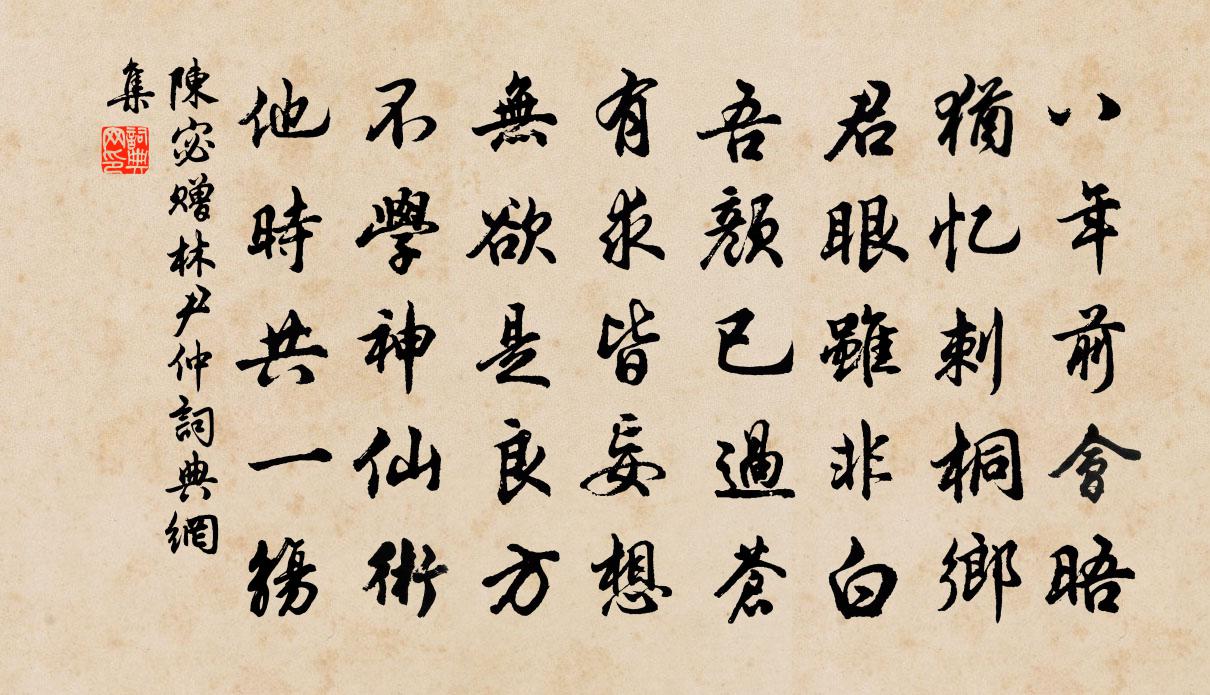 八年前會晤
猶忆刺桐鄉
君眼雖非白
吾顔已過蒼
有求皆妄想
無欲是良方
不學神仙術
他時共一觴
陳宓贈林尹仲詞典網
集
詞典网印